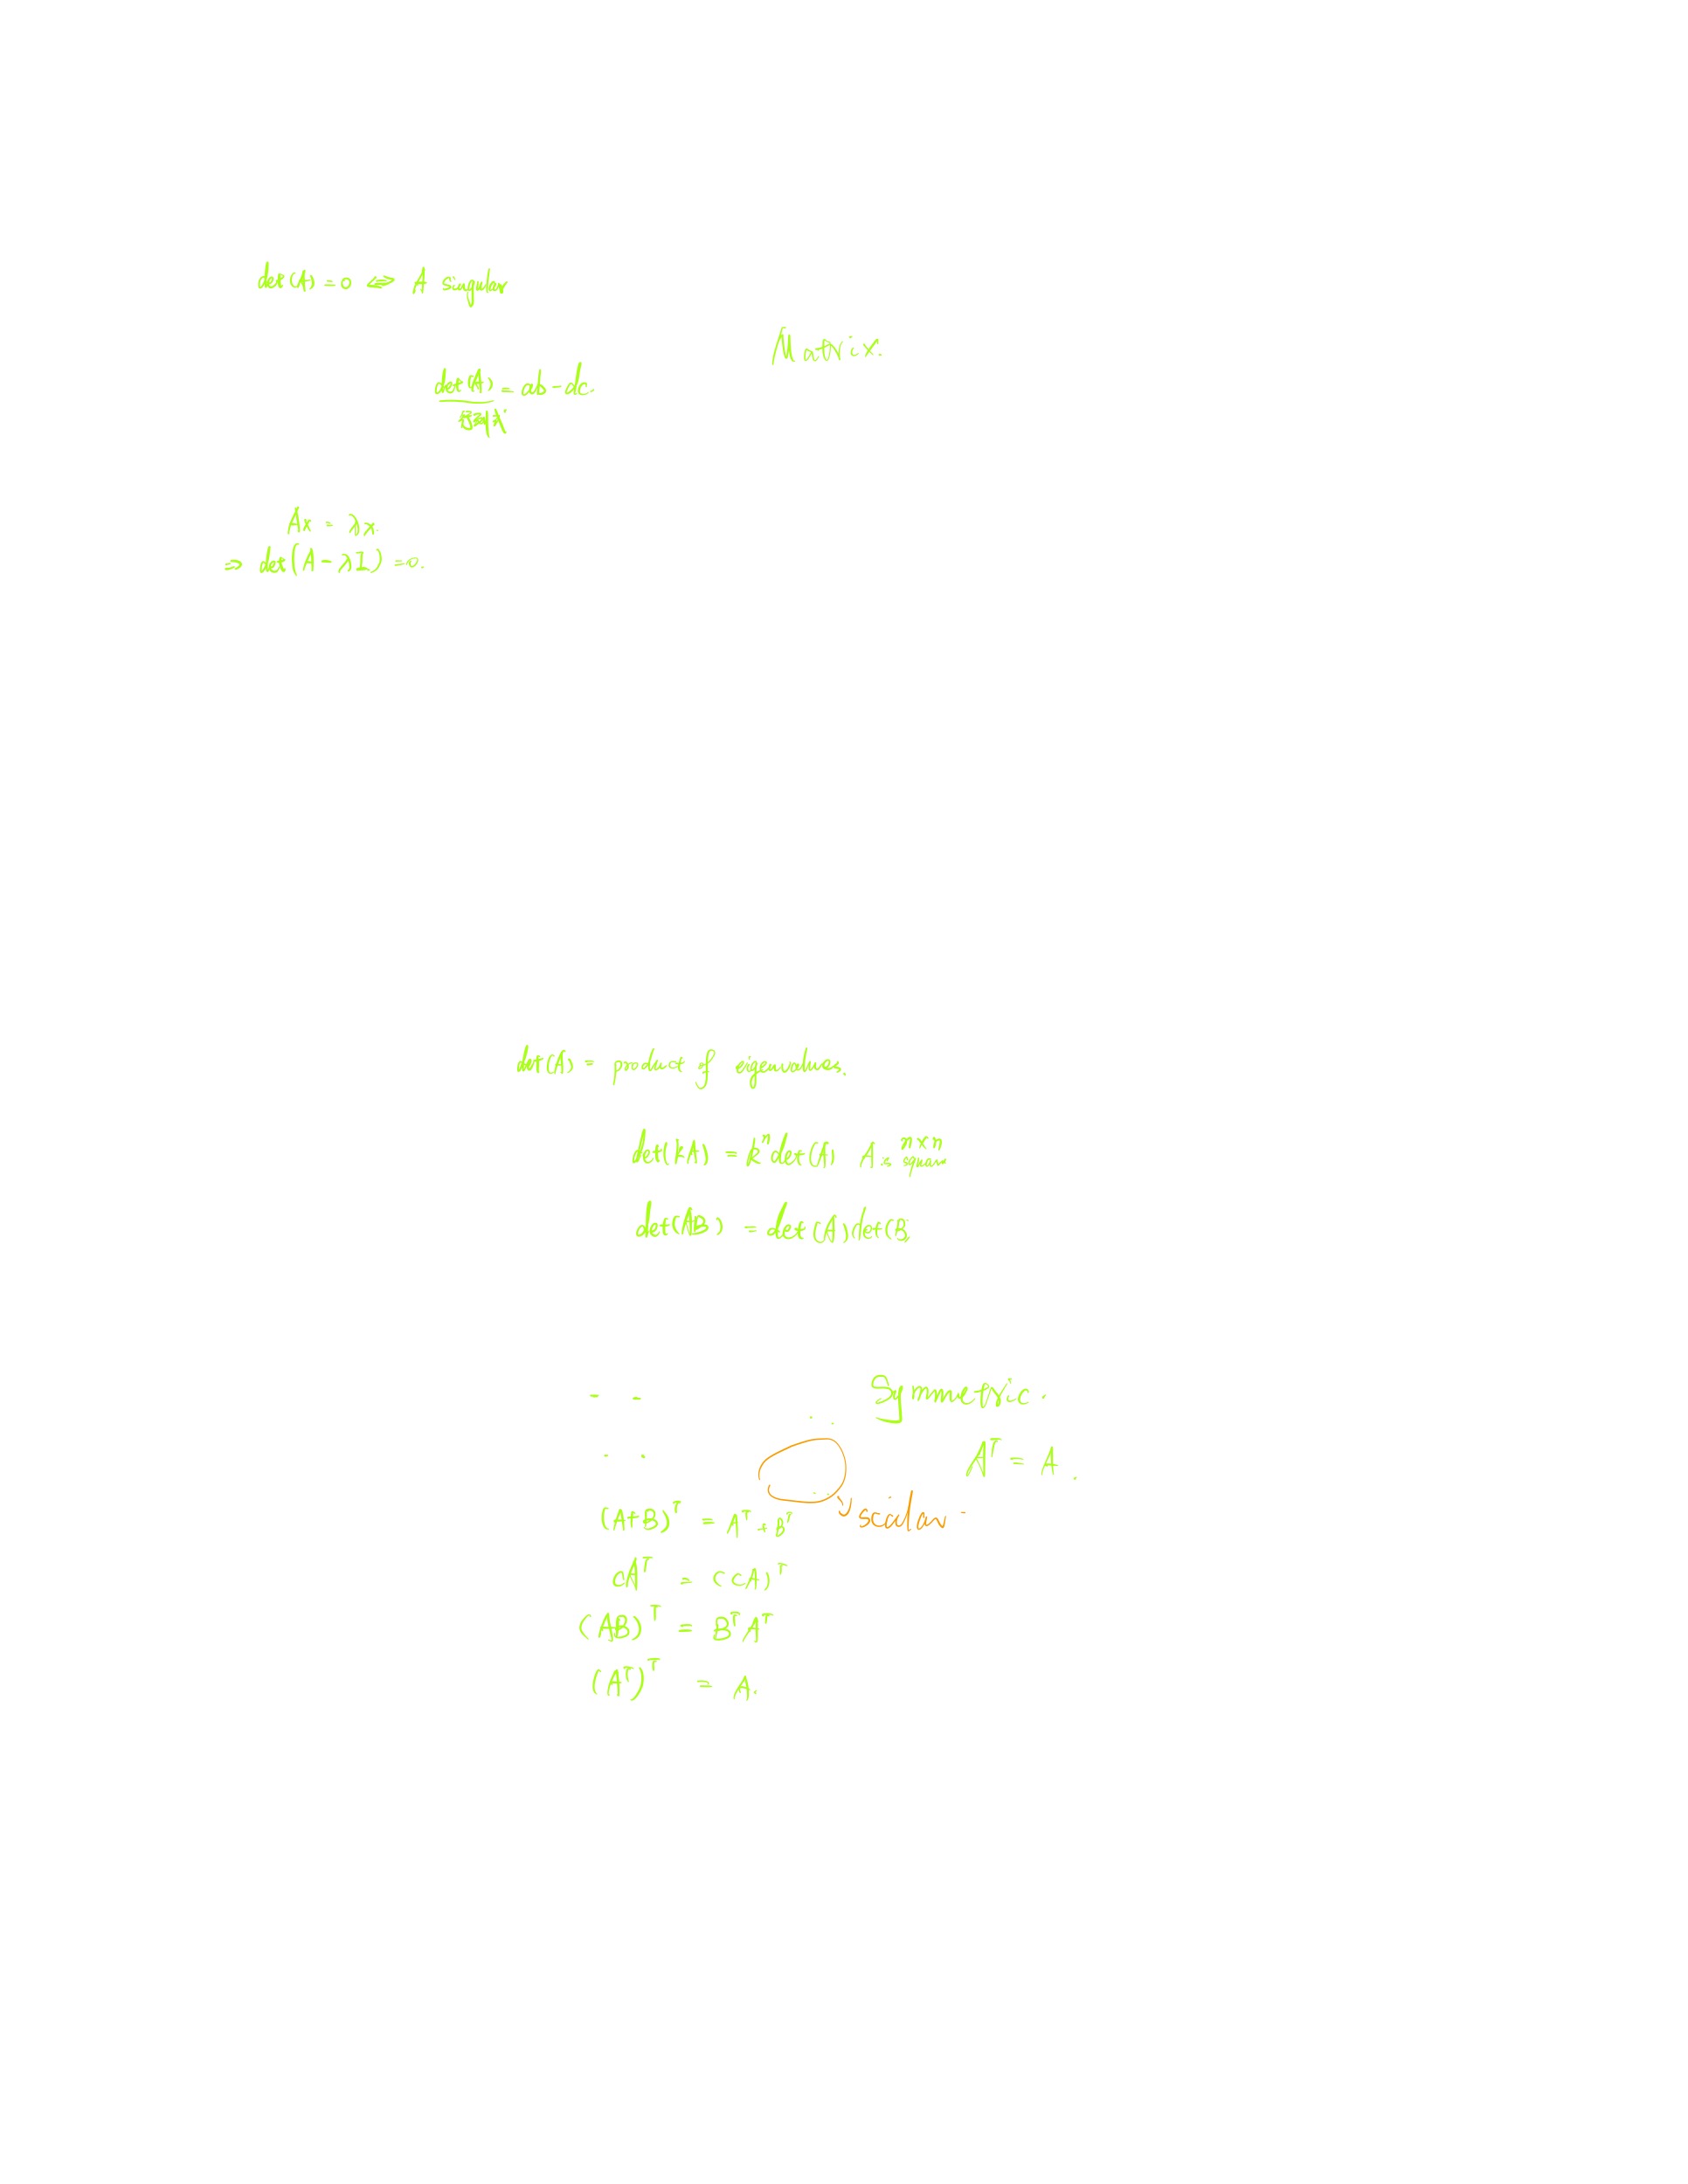 det(A) = 0 ⇔ A singular
Matrix.
det(A) = ab - dc.
行列式
Ax = λx.
⇒ det(A - λI) = 0.
det(A) = product of eigenvalues.
det(kA) = kⁿdet(A) A is n×n square
det(AB) = det(A)det(B)
Symmetric.
Aᵀ = A.
(A+B)ᵀ = Aᵀ + Bᵀ
scalar
cAᵀ = (cA)ᵀ
(AB)ᵀ = BᵀAᵀ
(Aᵀ)ᵀ = A.